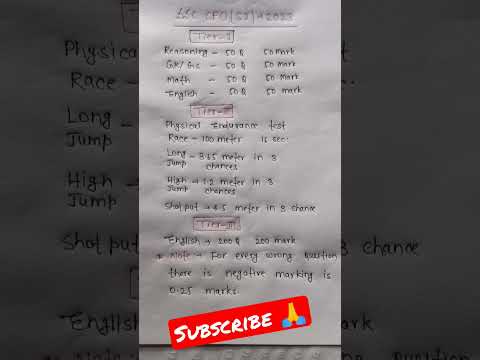 SSC CPO (SI) - 2023
Tier-I
Reasoning - 50 Q 50 mark
GK/Gs - 50 Q 50 mark
Math - 50 Q 50 mark
English - 50 Q 50 mark
Tier-II
Physical Endurance test
Race - 100 meter 16 sec.
Long Jump - 3.65 meter in 3 chances
High Jump → 1.2 meter in 3 chances
Shot put → 4.5 meter in 3 chance
Tier-III
English → 200 Q 200 mark
* Note → For every wrong question
there is negative marking is
0.25 marks.
SUBSCRIBE 🙏